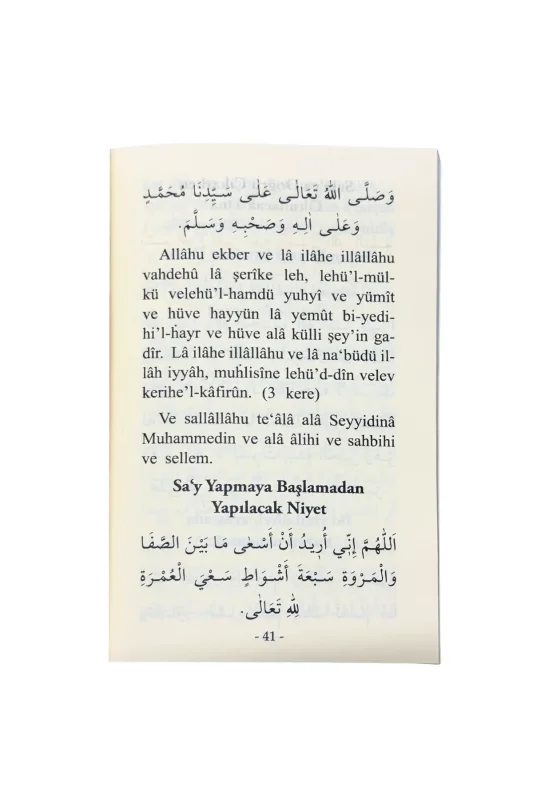 وَصَلَّى اللهُ تَعَالَى عَلَى سَيِّدِنَا مُحَمَّدٍ
وَعَلَى اٰلِهِ وَصَحْبِهِ وَسَلَّمَ.
Allâhu ekber ve lâ ilâhe illâllâhu
vahdehû lâ şerîke leh, lehü'l-mül-
kü velehü'l-hamdü yuhyî ve yümît
ve hüve hayyün lâ yemût bi-yedi-
hi'l-ḣayr ve hüve alâ külli şey'in ga-
dîr. Lâ ilâhe illâllâhu ve lâ na'büdü il-
lâh iyyâh, muḣlisîne lehü'd-dîn velev
kerihe'l-kâfirûn. (3 kere)
Ve sallâllâhu te‘âlâ alâ Seyyidinâ
Muhammedin ve alâ âlihi ve sahbihi
ve sellem.
Sa‘y Yapmaya Başlamadan
Yapılacak Niyet
اَللّٰهُمَّ اِنِّي أُرِيدُ أَنْ أَسْعٰى مَا بَيْنَ الصَّفَا
وَالْمَرْوَةِ سَبْعَةَ أَشْوَاطٍ سَعْيَ الْعُمْرَةِ
لِلّٰهِ تَعَالٰى.
- 41 -